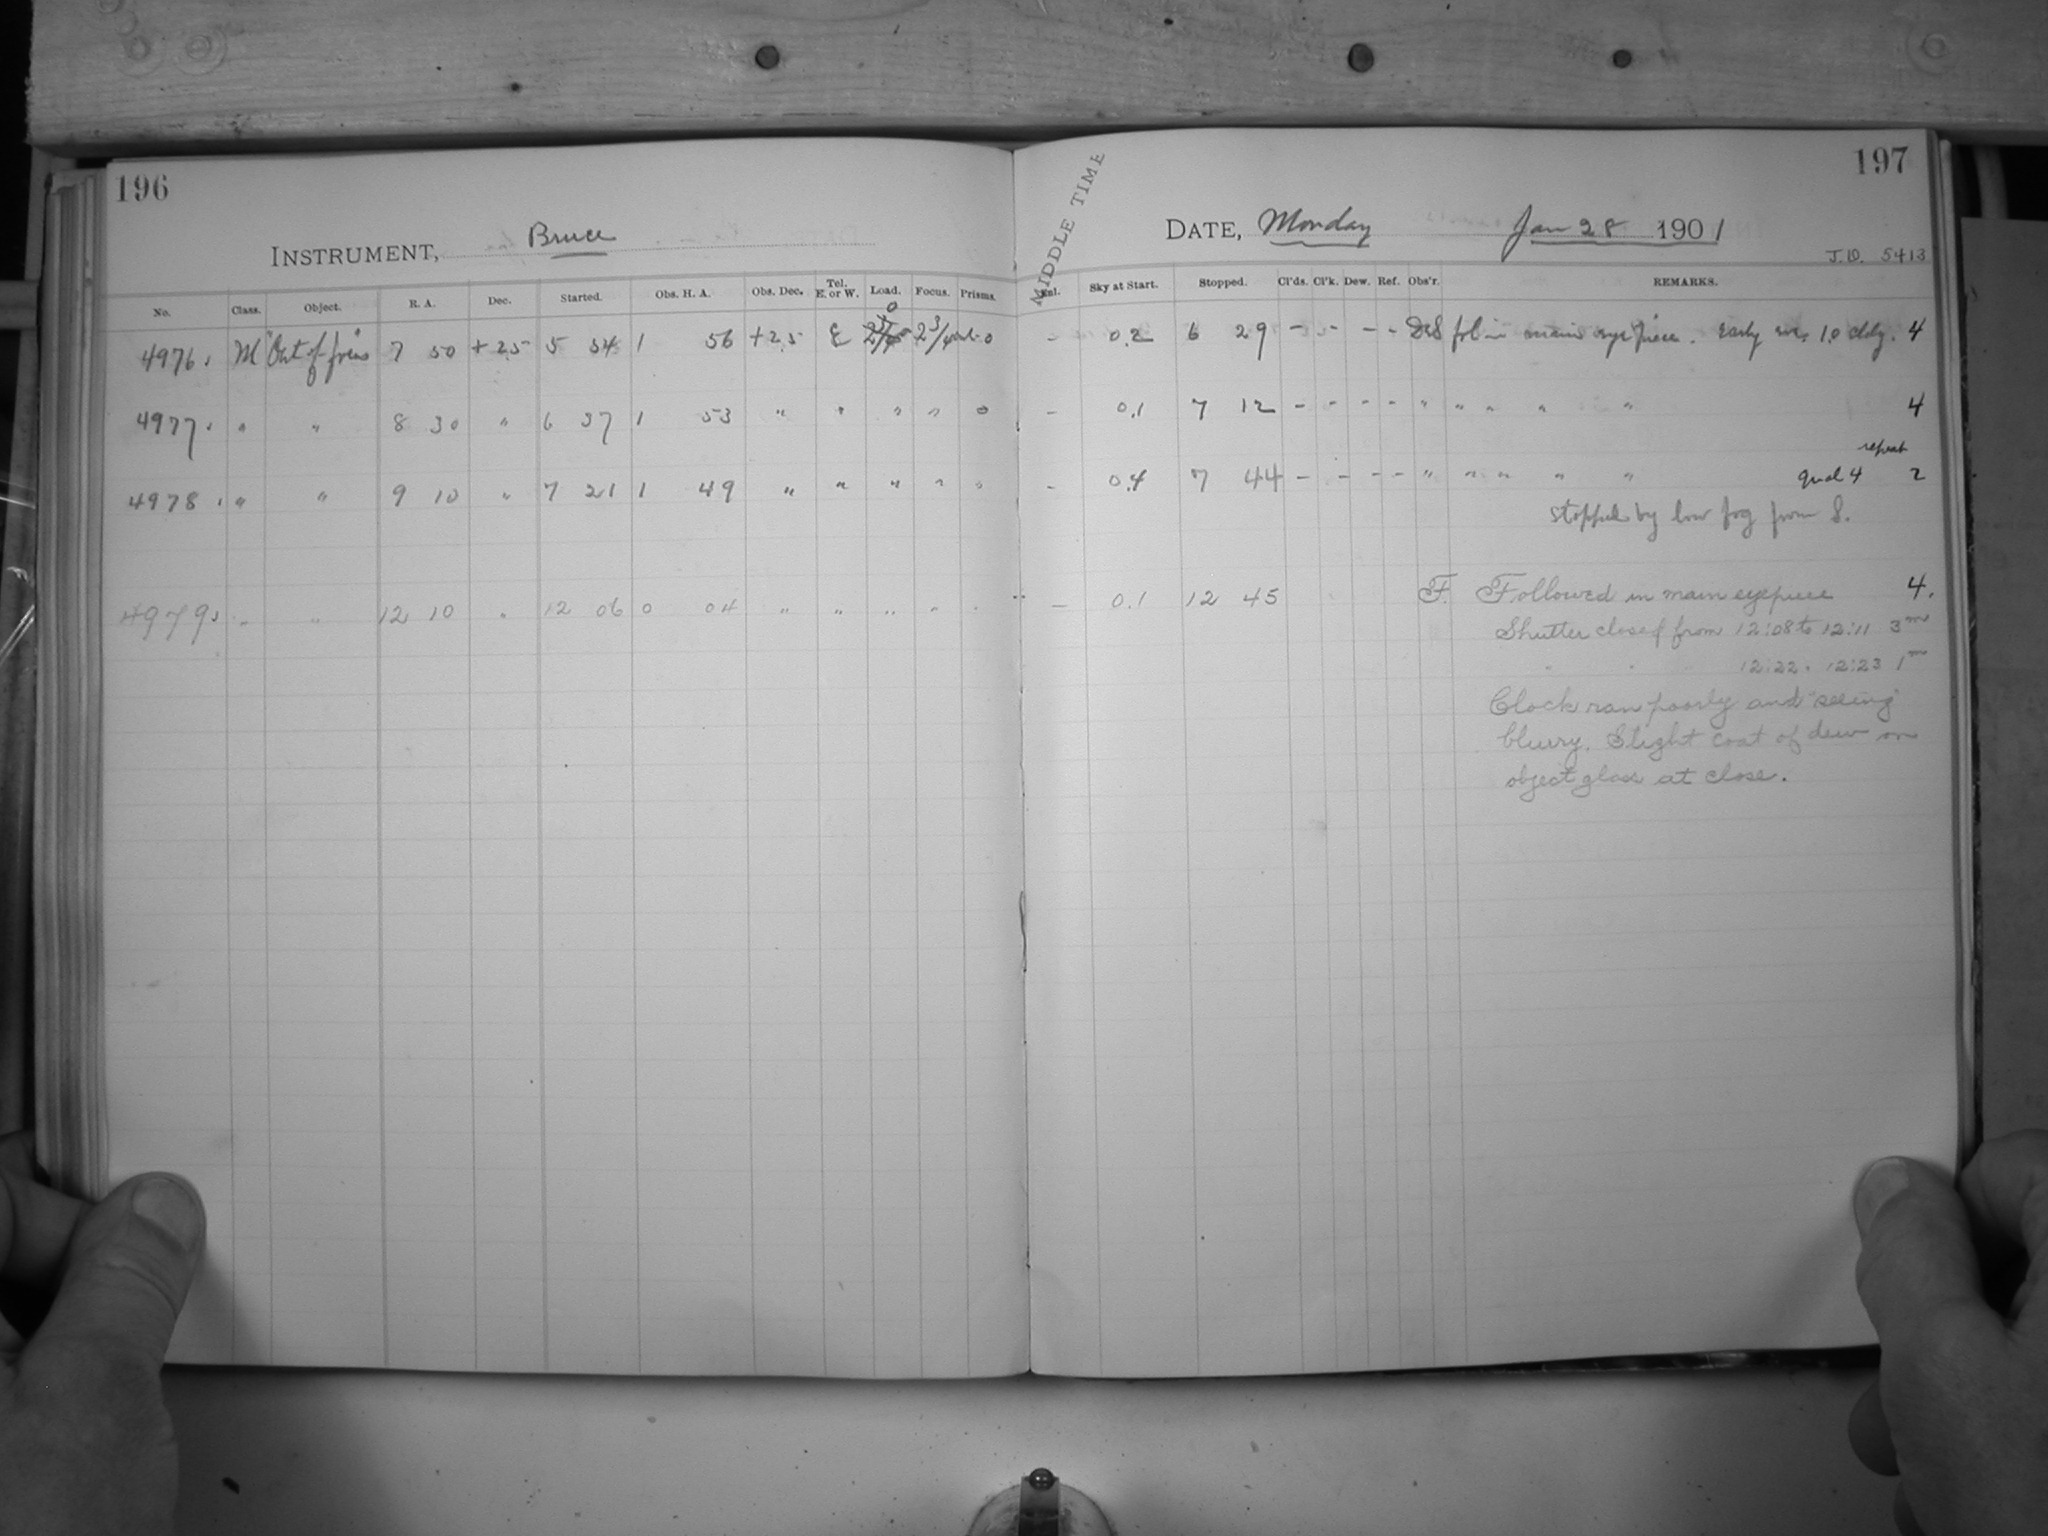 196
INSTRUMENT, Bruce
No. Class. Object. R. A. Dec. Started. Obs. H. A. Obs. Dec. Tel. E. or W. Load. Focus. Prisms.
4976. M "Out of focus" 7 50 +25 5 54 1 56 +25 E 0 2 3/4 0
4977. " " 8 30 " 6 37 1 53 " " " " 0
4978. " " 9 10 " 7 21 1 49 " " " " "
4979. " " 12 10 " 12 06 0 04 " " " " "
MIDDLE TIME
197
DATE, Monday Jan 28 1901
J.D. 5413
Sky at Start. Stopped. Cl'ds. Cl'k. Dew. Ref. Obs'r. REMARKS.
- 0.2 6 29 - - - - fol in main eye piece. Early 4
- 0.1 7 12 - - - - " " " " " 4
repeat
- 0.4 7 44 - - - - " " " " " Qual 4 2
stopped by low fog from S.
- 0.1 12 45 F. Followed in main eyepiece 4.
Shutter closed from 12:08 to 12:11 3m
" " 12:22 " 12:23 1m
Clock ran poorly and "seeing"
blurry. Slight coat of dew on
object glass at close.